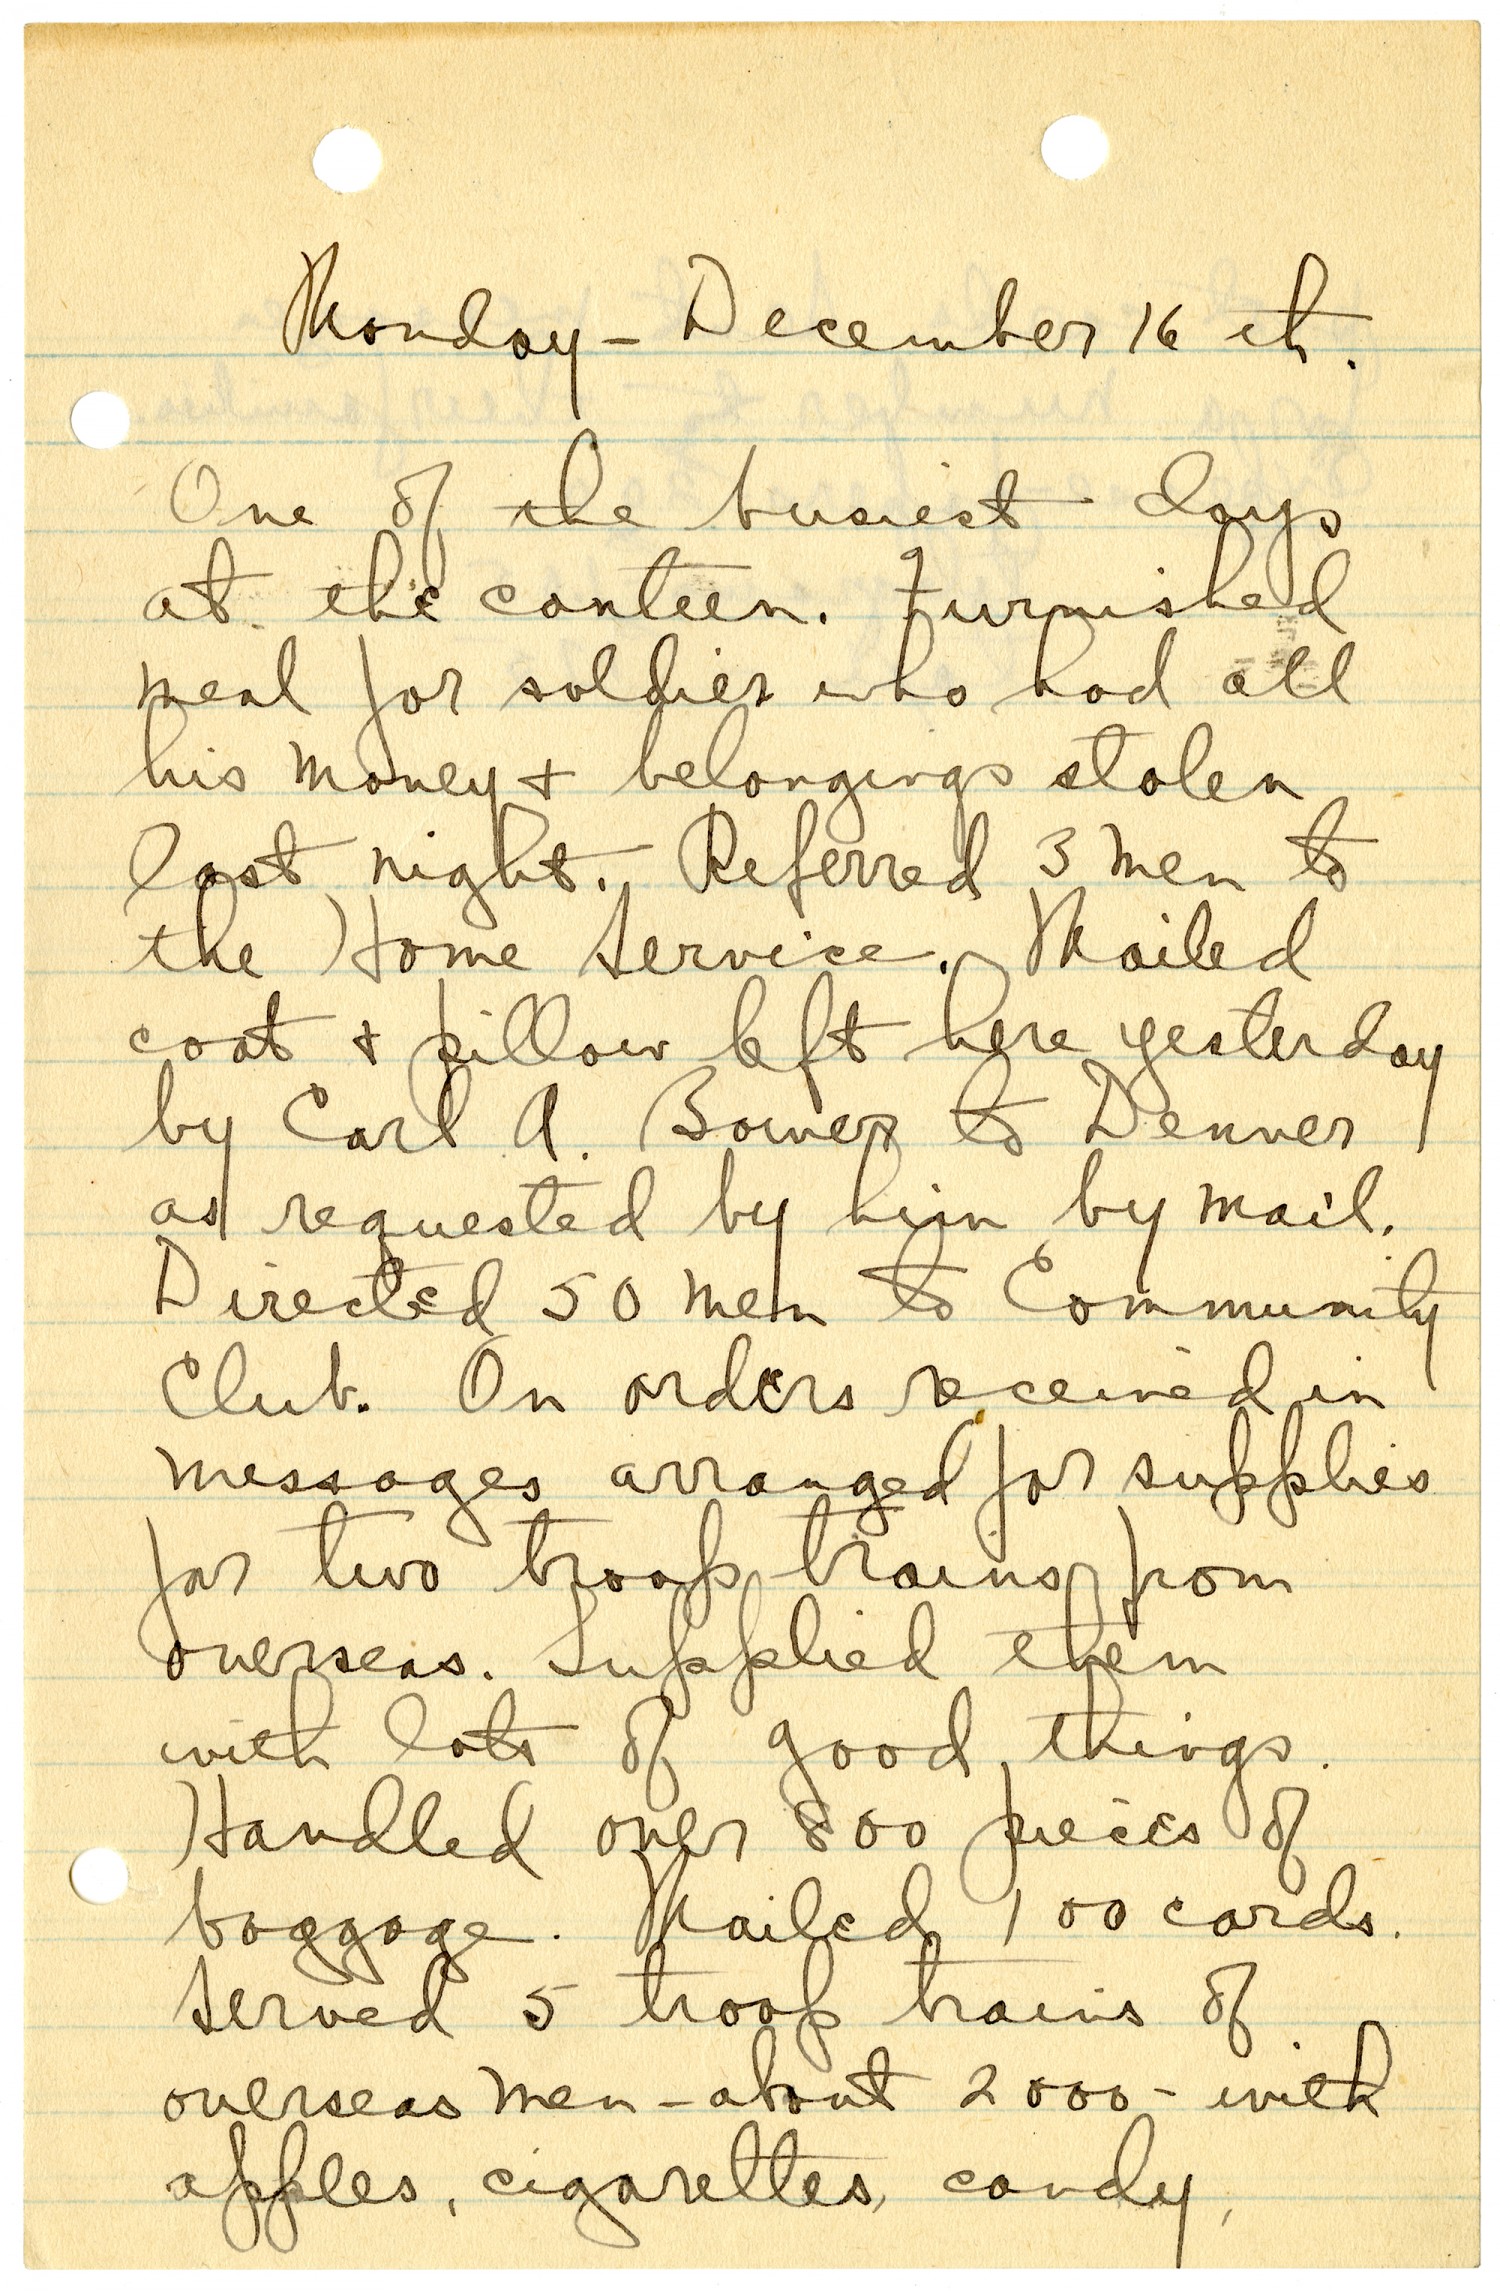 Monday - December 16 th.
One of the busiest days
at the canteen. Furnished
meal for soldier who had all
his money + belongings stolen
last night. Referred 3 men to
the Home Service. Mailed
coat + pillow left here yesterday
by Carl A. Bower to Denver
as requested by him by mail.
Directed 50 men to Community
Club. On orders received in
messages arranged for supplies
for two troop trains from
overseas. Supplied them
with lots of good things.
Handled over 800 pieces of
baggage. Mailed 100 cards.
Served 5 troop trains of
overseas men - about 2000 - with
apples, cigarettes, candy,